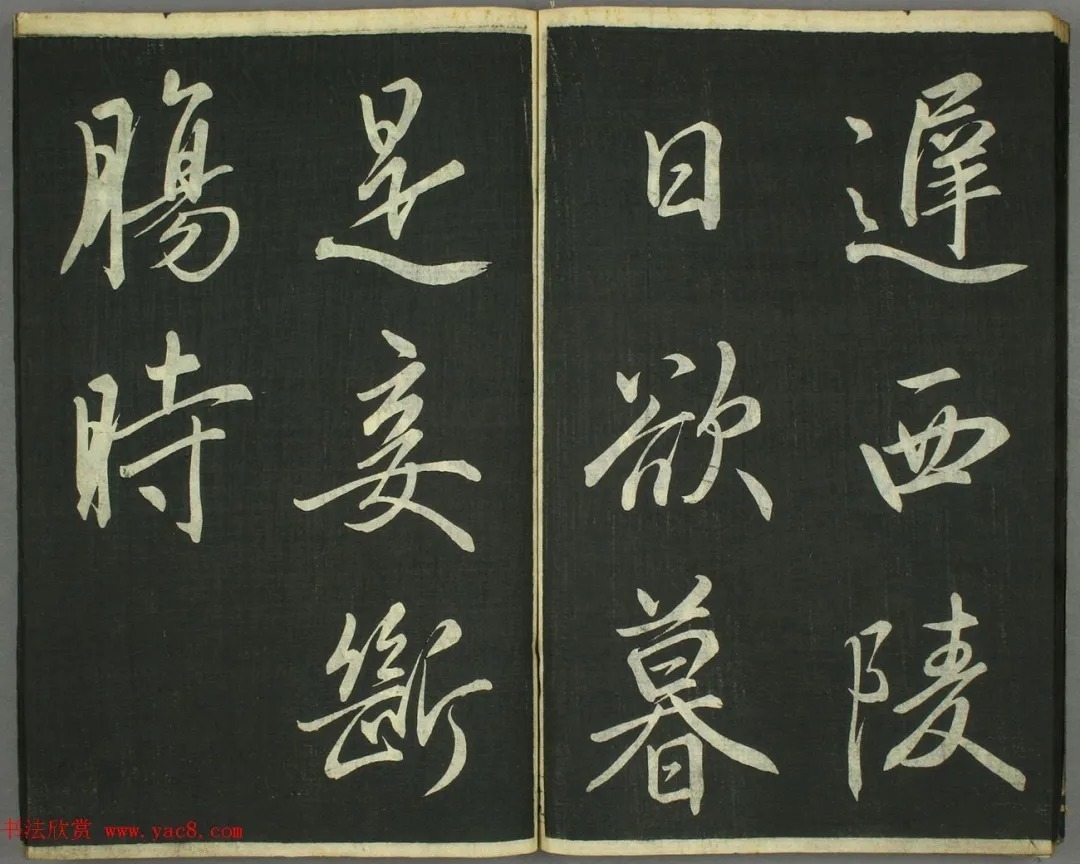 遲西陵
日欲暮
是妾斷
膓時
书法欣赏 www.yac8.com